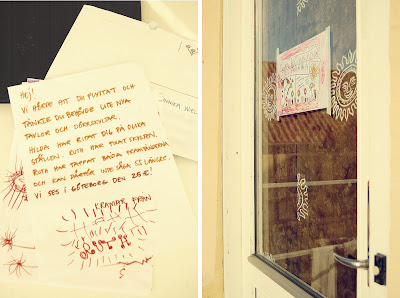 HEJ!
VI HÖRDE ATT DU FLYTTAT OCH
TÄNKTE DU BEHÖVDE LITE NYA
TAVLOR OCH DÖRRSKYLTAR.
HILDA HAR RITAT DIG PÅ OLIKA
STÄLLEN. RUTH HAR RITAT SKYLTEN.
RUTH HAR TAPPAT BÅDA FRAMTÄNDERNA
OCH KAN DÄRFÖR INTE SÄGA SS LÄNGRE.
VI SES I GÖTEBORG DEN 28:E!
KRAMAR FRÅN